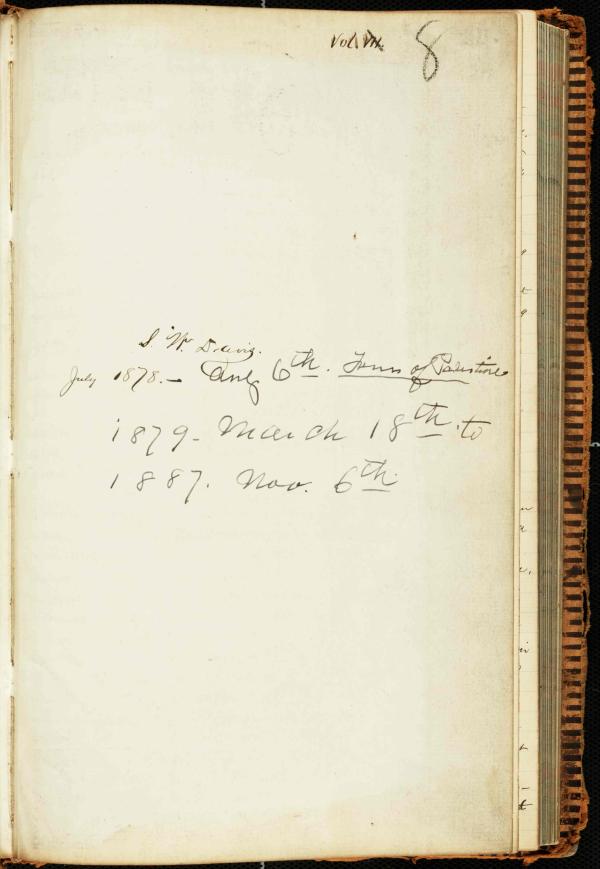 Vol. VII. 8
S. W. Davis.
July 1878. – Aug 6th. Town of Palestine
1879 – March 18th. to
1887. Nov. 6th.